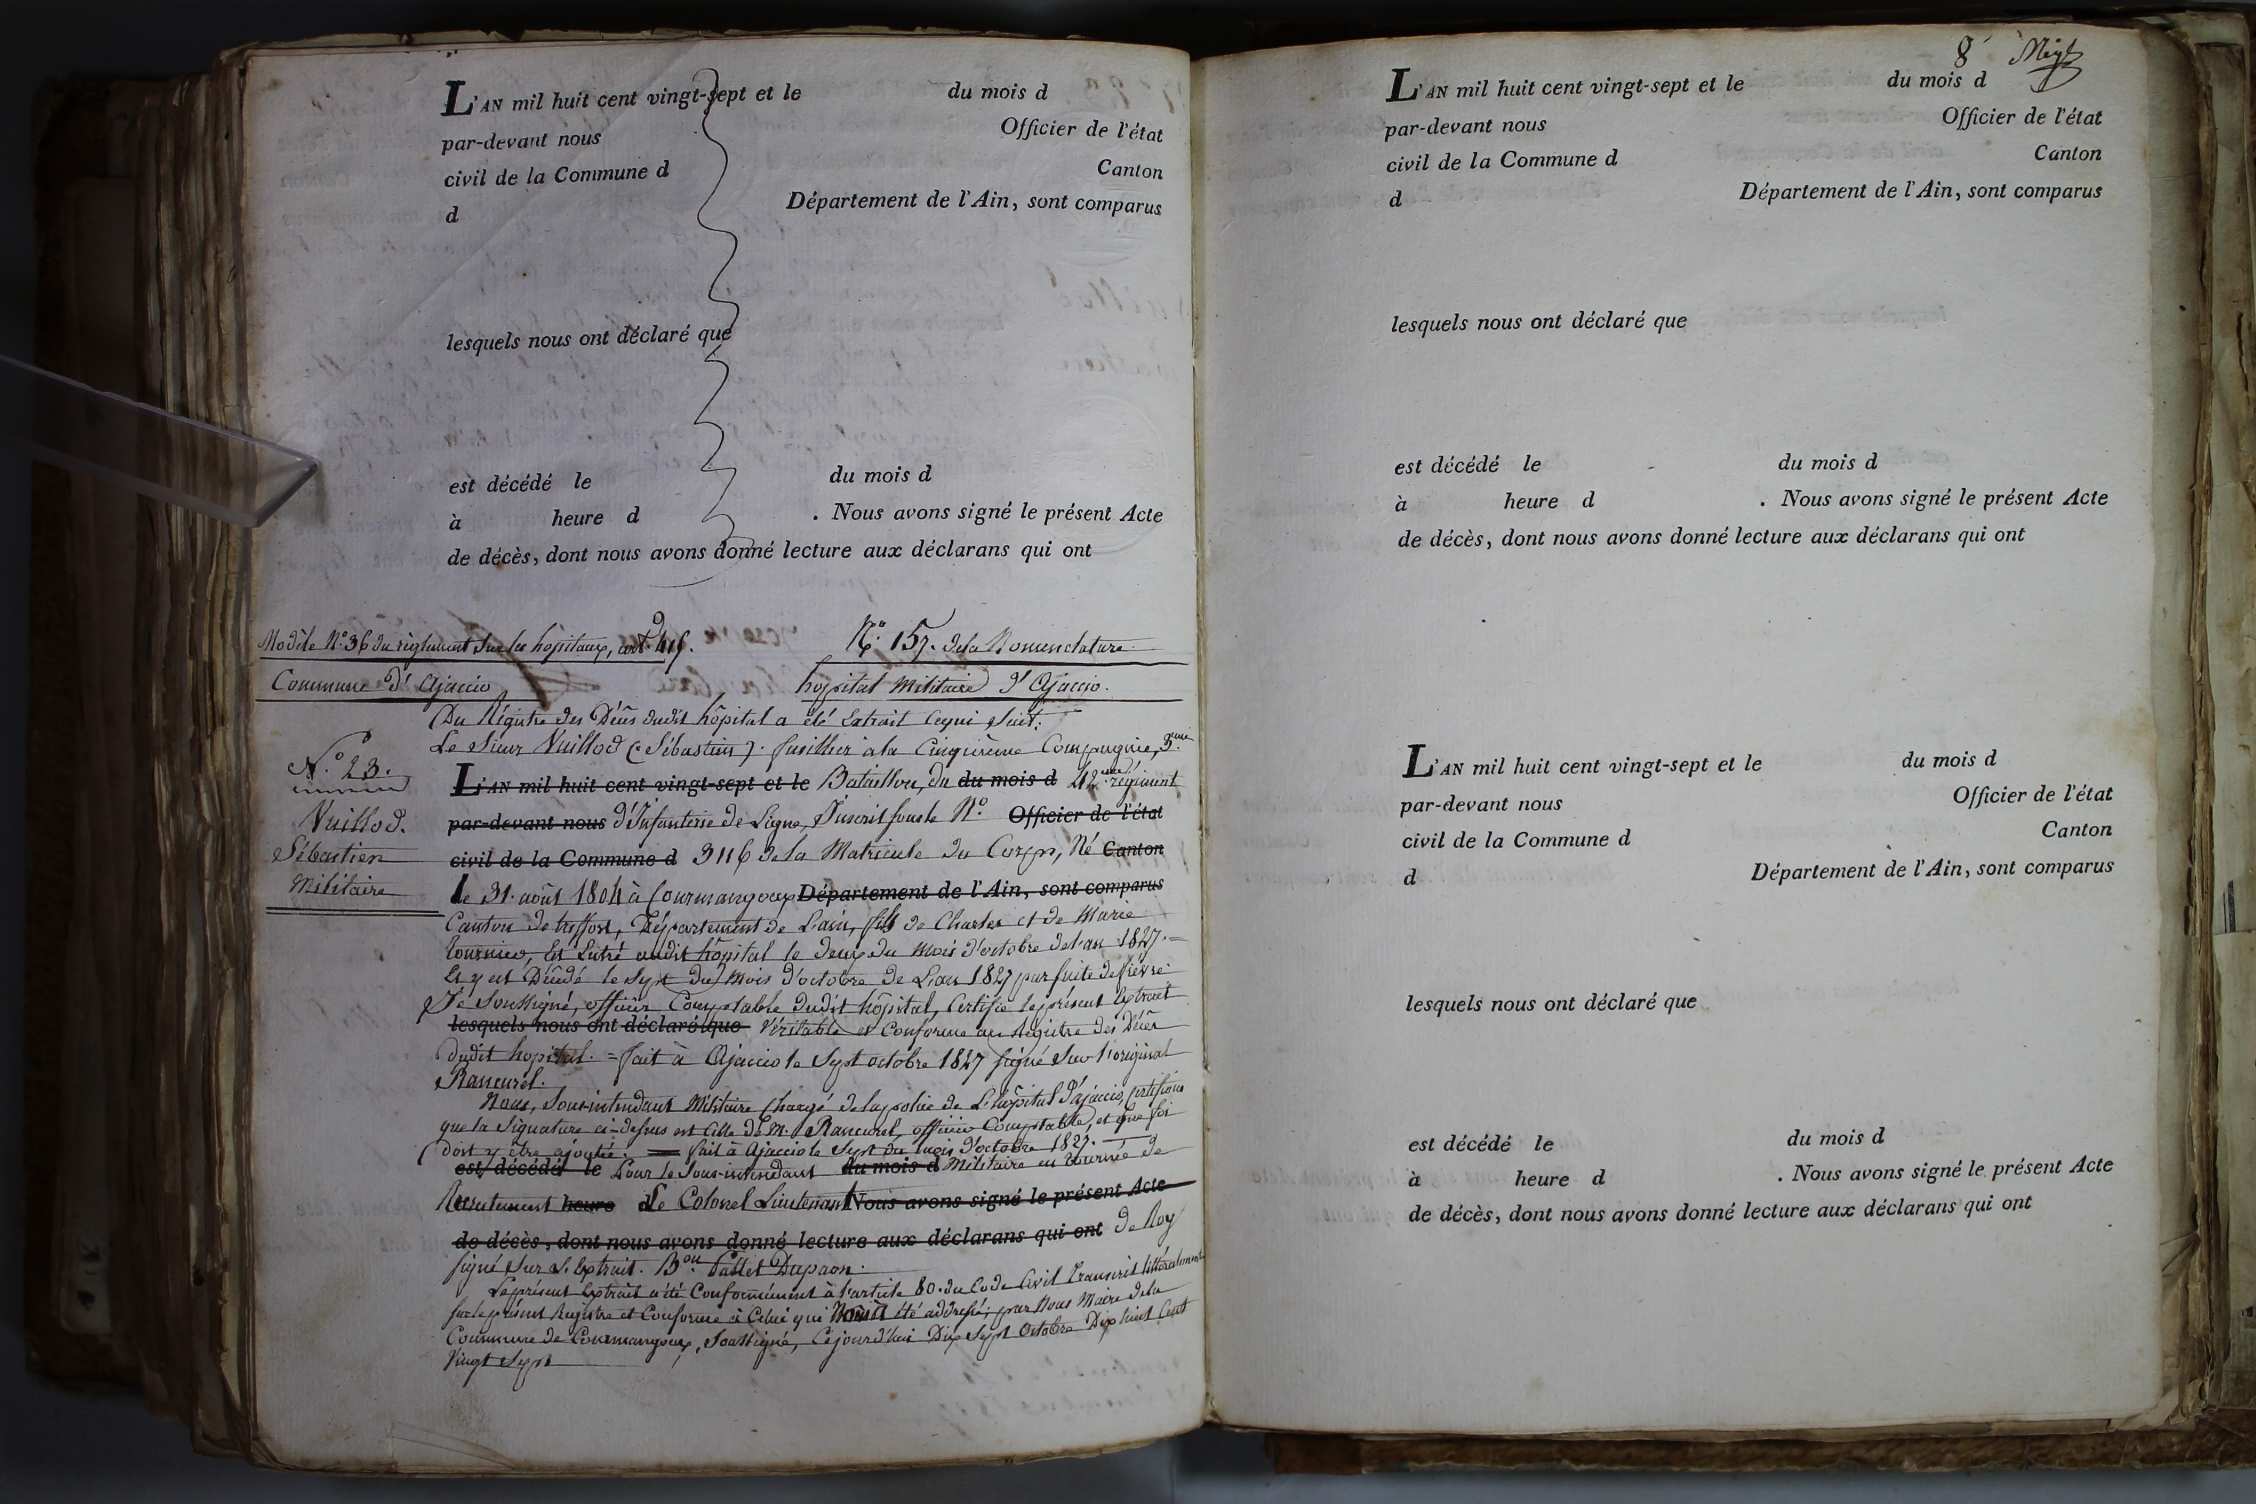 L'AN mil huit cent vingt-sept et le du mois d
par-devant nous Officier de l'état
civil de la Commune d Canton
d Département de l'Ain, sont comparus
lesquels nous ont déclaré que
est décédé le du mois d
à heure d . Nous avons signé le présent Acte
de décès, dont nous avons donné lecture aux déclarans qui ont
Modèle N.º 36 du règlement sur les hôpitaux, art. 419. N.º 157. de la Nomenclature
Commune d'Ajaccio hôpital Militaire d'Ajaccio.
N.º 23.
Vuillod.
Sébastien
Militaire
Du Régistre des Décès dudit hôpital a été Extrait Ce qui Suit:
Le Sieur Vuillod (Sébastien). fusillier à la Cinquième Compagnie, 3.eme
L'AN mil huit cent vingt-sept et le Bataillon, du du mois d 42.eme régiment
par-devant nous d'Infanterie de Ligne, Inscrit sous le N.º Officier de l'état
civil de la Commune d 3116 de la Matricule du Corps, Né Canton
le 31. août 1804 à Courmangoux Département de l'Ain, sont comparus
Canton de treffort, Département de L'ain, fils de Charles et de Marie
Tournier, Est Entré audit hôpital le deux du Mois d'octobre de l'an 1827. =
Et y est Décédé le Sept du Mois d'octobre de L'an 1827 par suite de fièvre
Je Soussigné, officier Comptable dudit hôpital, Certifie le présent Extrait
lesquels nous ont déclaré que Véritable et Conforme au Régistre des Décès
dudit hopital. = fait à Ajaccio le Sept octobre 1827 signé Sur l'original
Rancurel.
Nous, Sous-intendant Militaire Chargé de la police de L'hôpital d'ajaccio, Certifions
que la Signature ci-dessus est Celle de M. Rancurel, officier Comptable, et que foi
doit y être ajoutée. = fait à Ajaccio le Sept du mois d'octobre 1827.
est décédé le Pour le Sous-intendant du mois d Militaire en tournée de
Recrutement heure d Le Colonel Lieutenant Nous avons signé le présent Acte
de décès, dont nous avons donné lecture aux déclarans qui ont de Roy
signé Sur L'Extrait. B.on
Le présent Extrait a été Conformément à l'article 80. du Code Civil Transcrit littéralement
sur le présent Registre et Conforme à Celui qui Nous a été addressé; par Nous Maire de la
Commune de Courmangoux, Soussigné, Cejourd'hui Dix Sept Octobre Dix huit Cent
Vingt Sept
8
L'AN mil huit cent vingt-sept et le du mois d
par-devant nous Officier de l'état
civil de la Commune d Canton
d Département de l'Ain, sont comparus
lesquels nous ont déclaré que
est décédé le du mois d
à heure d . Nous avons signé le présent Acte
de décès, dont nous avons donné lecture aux déclarans qui ont
L'AN mil huit cent vingt-sept et le du mois d
par-devant nous Officier de l'état
civil de la Commune d Canton
d Département de l'Ain, sont comparus
lesquels nous ont déclaré que
est décédé le du mois d
à heure d . Nous avons signé le présent Acte
de décès, dont nous avons donné lecture aux déclarans qui ont